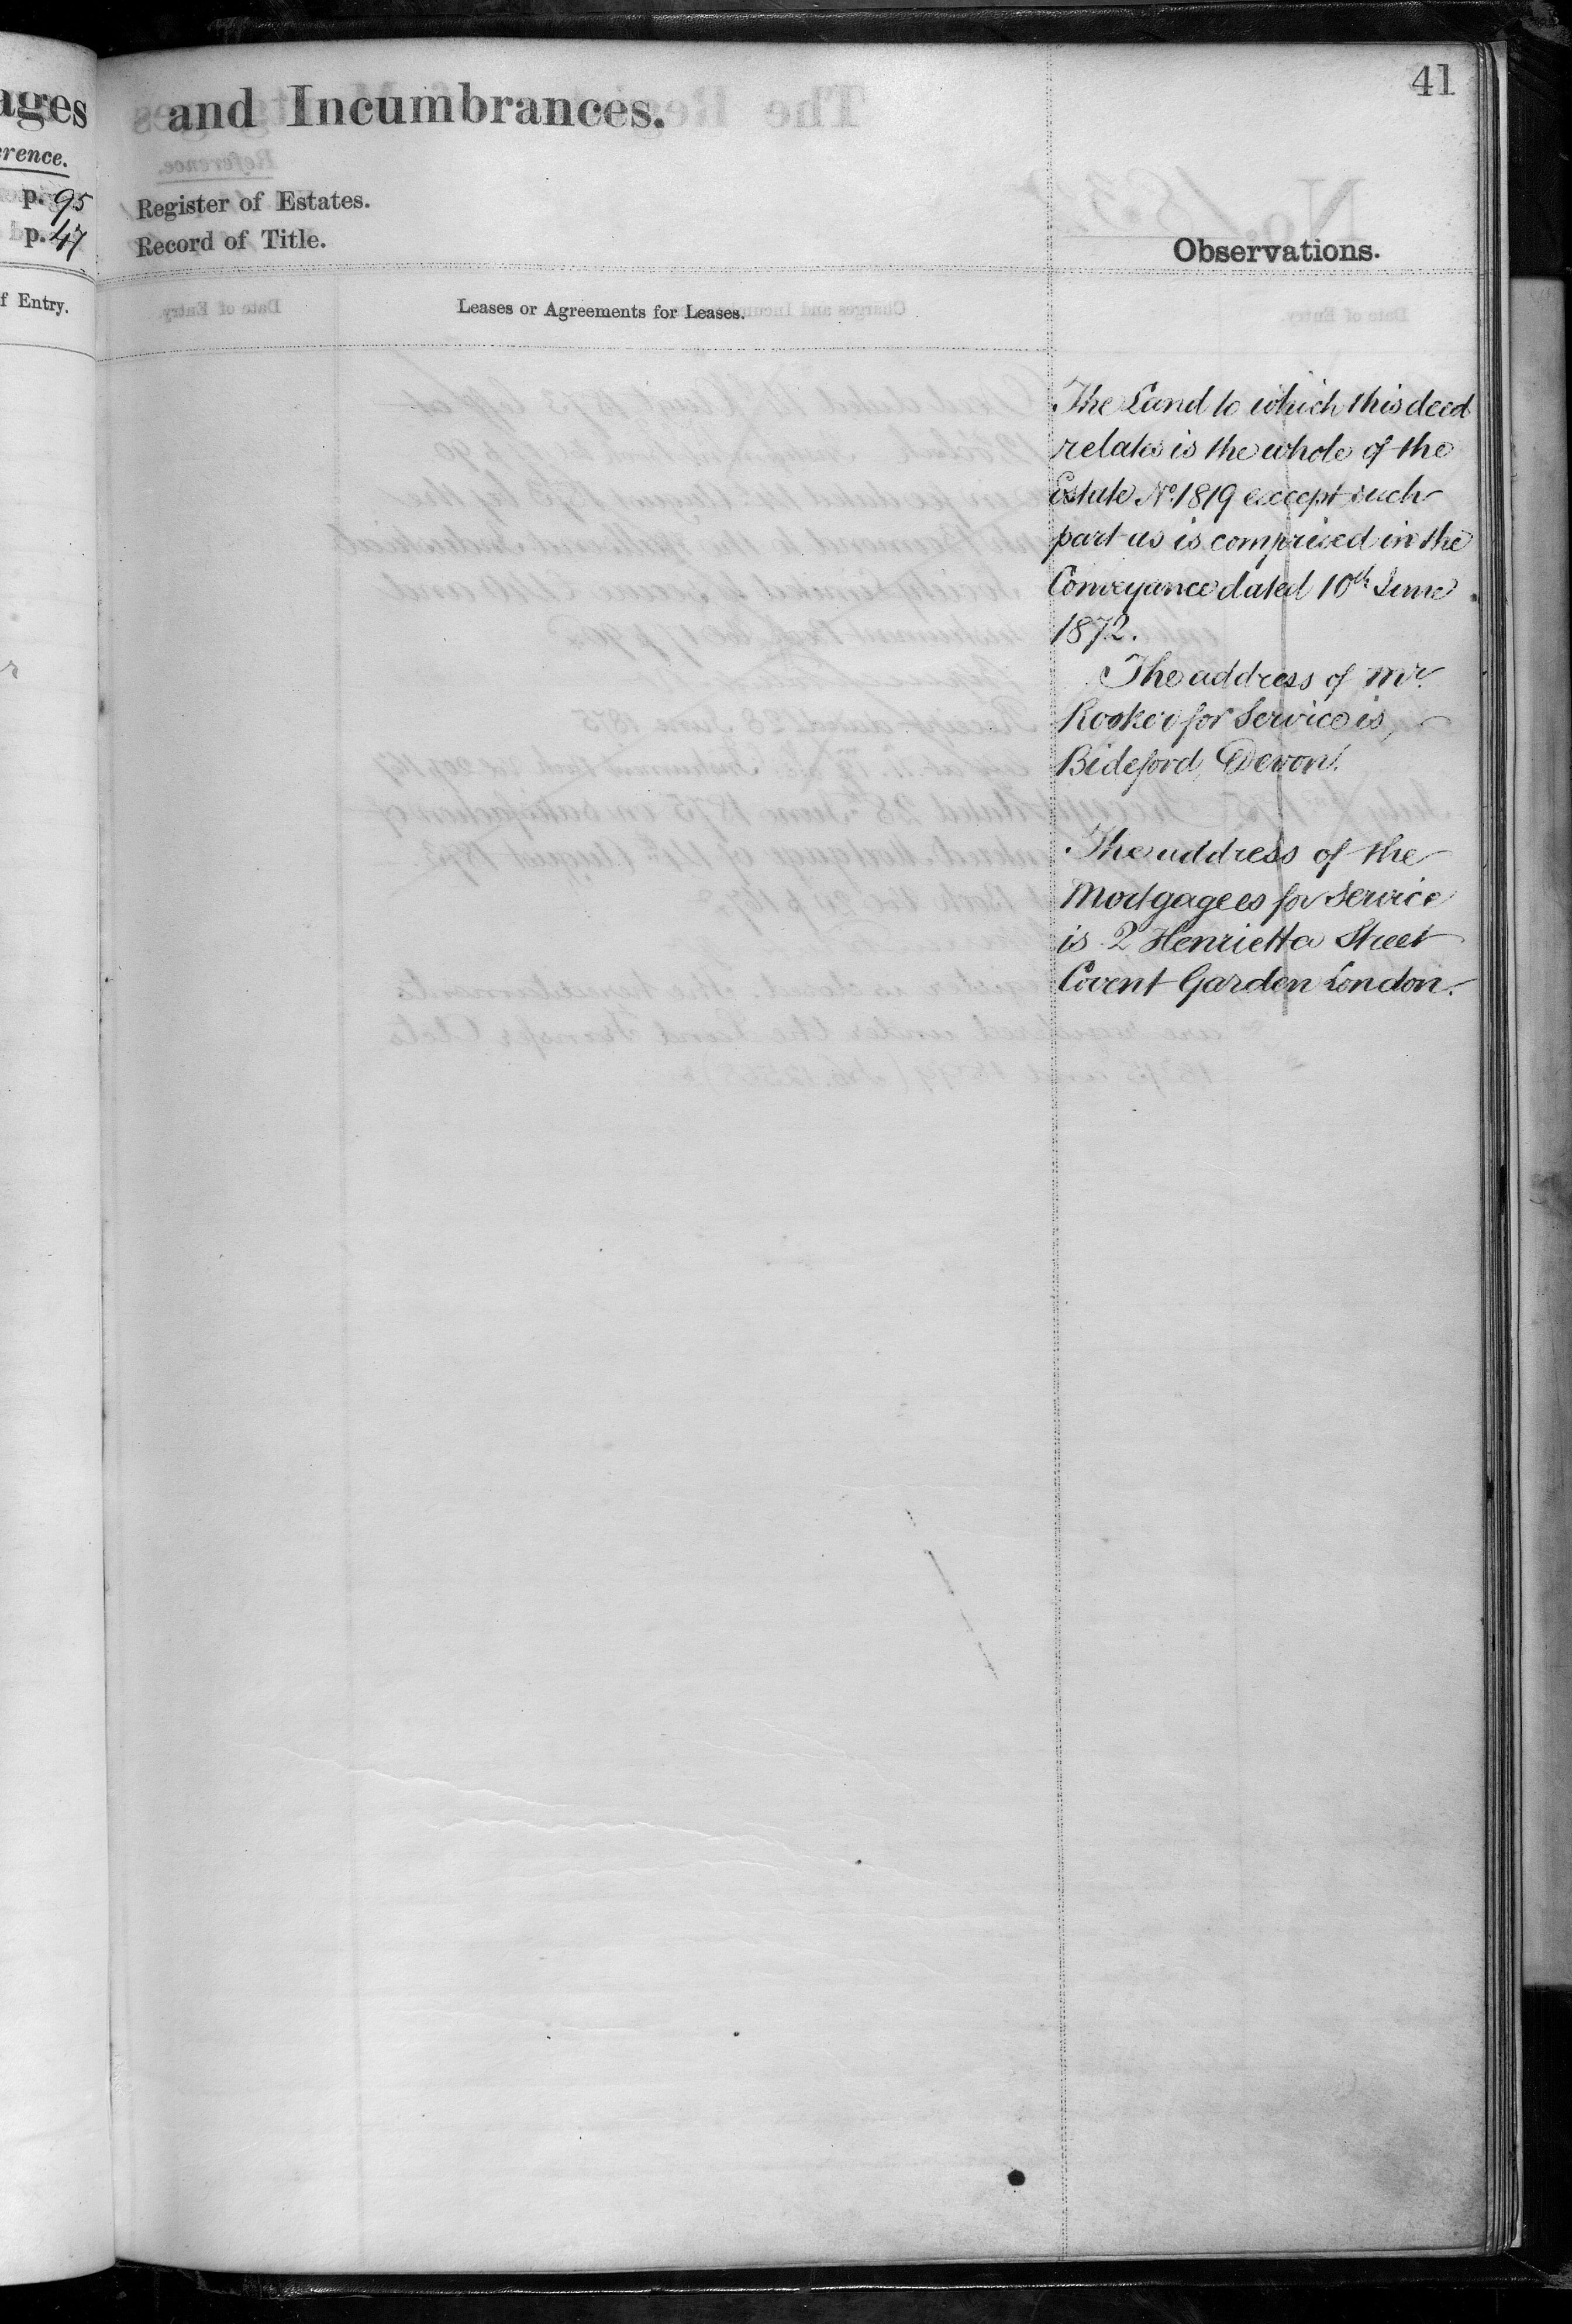 ages and Incumbrances.
41
erence.
p. 95 Register of Estates.
p. 47 Record of Title.
Observations.
f Entry.
Leases or Agreements for Leases.
The Land to which this deed
relates is the whole of the
Estate No. 1819 except such
part as is comprised in the
Conveyance dated 10th June
1872.
The address of Mr.
Rooker for Service is
Bideford, Devon.
The address of the
Mortgagees for Service
is 2 Henrietta Street
Covent Garden London.